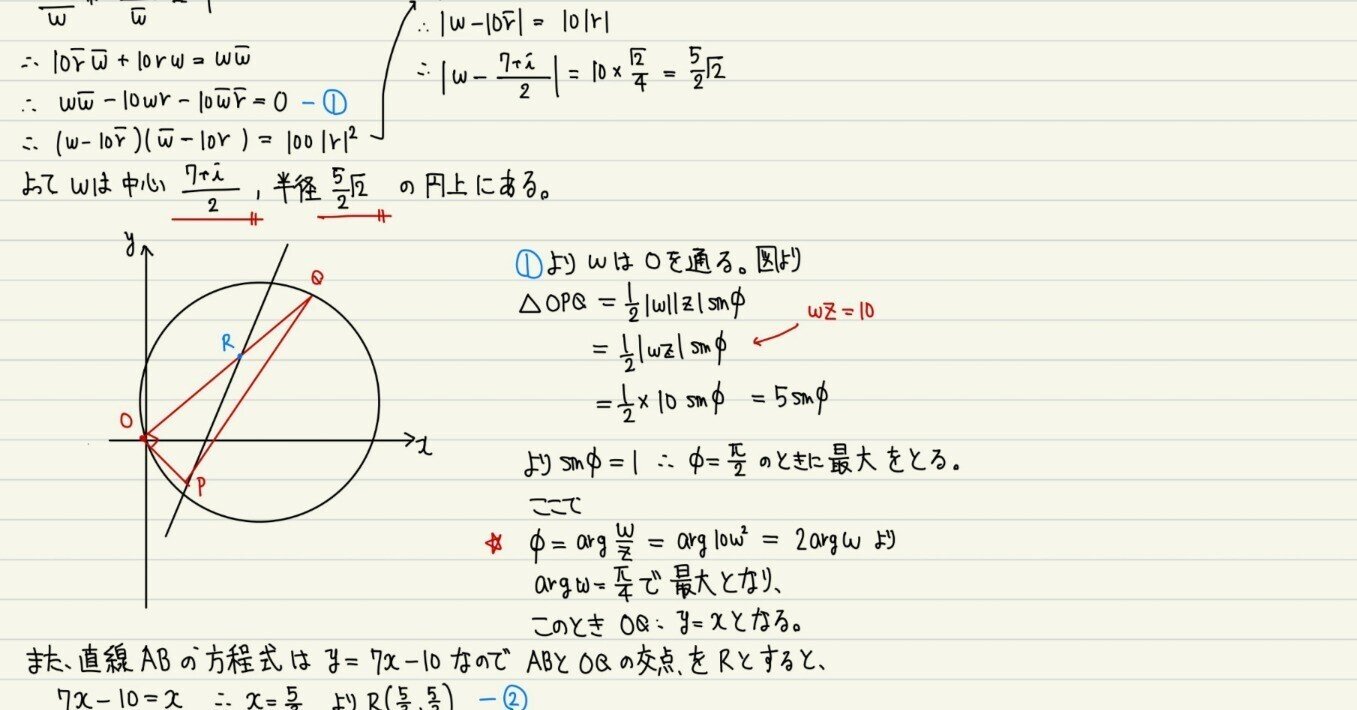 ∴ 10r̄w̄ + 10rw = ww̄
∴ ww̄ − 10wr − 10w̄r̄ = 0 − ①
∴ (w − 10r̄)(w̄ − 10r) = 100|r|²
∴ |w − 10r̄| = 10|r|
∴ |w − (7+i)/2| = 10 × √2/4 = 5/2√2
よって wは中心 (7+i)/2 , 半径 5/2√2 の円上にある。
y
Q
R
O
x
P
①より wは Oを通る。図より
△OPQ = 1/2|w||z|sinφ
wz = 10
= 1/2|wz|sinφ
= 1/2 × 10 sinφ = 5sinφ
より sinφ = 1 ∴ φ = π/2 のときに最大をとる。
ここで
☆ φ = arg w/z = arg 10w² = 2argw より
argw = π/4 で最大となり、
このとき OQ: y = x となる。
また、直線ABの方程式は y = 7x − 10 なので ABとOQの交点をRとすると、
7x − 10 = x ∴ x = 5/3 より R(5/3, 5/3) − ②